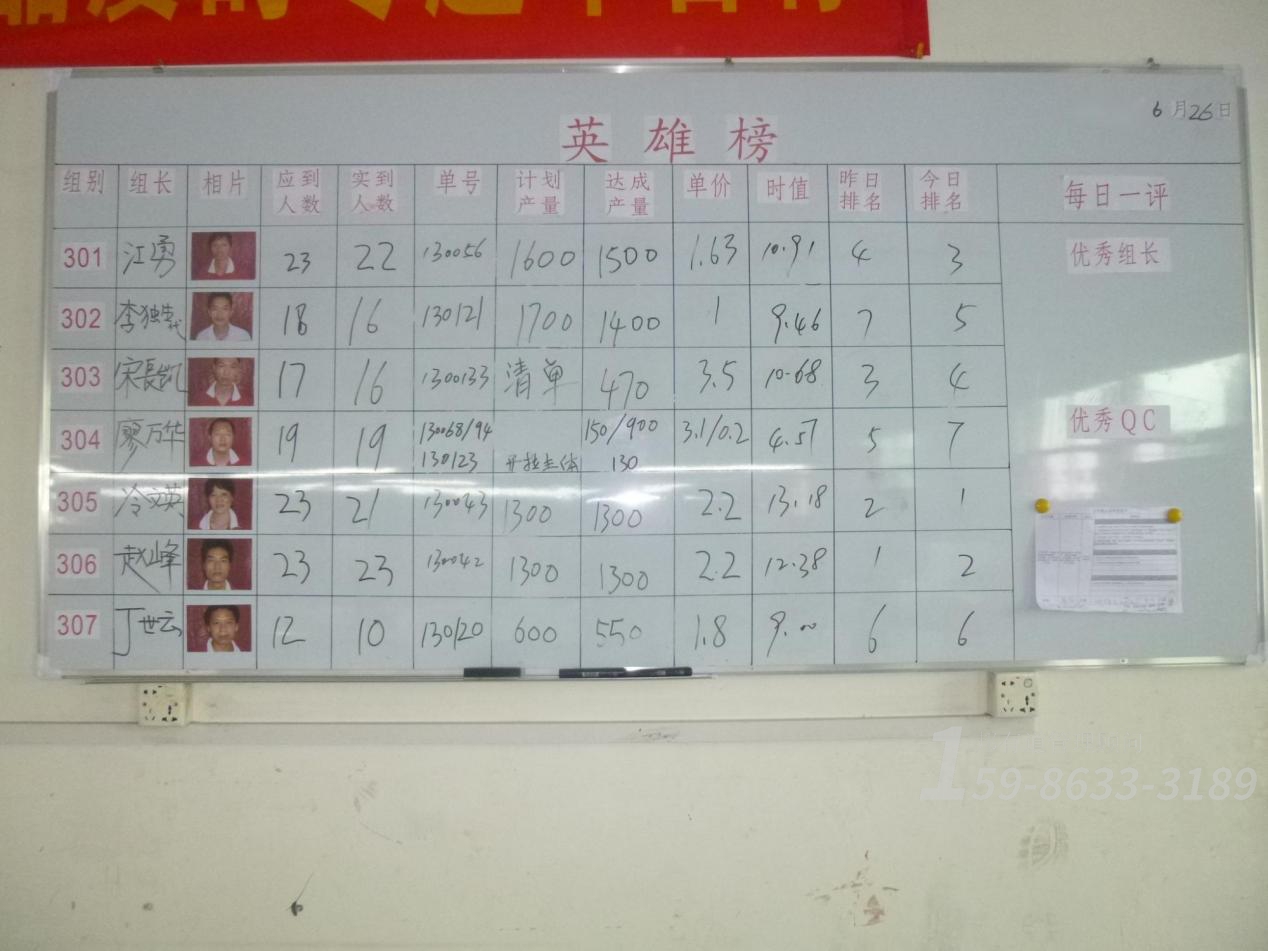 英雄榜
6月26日
组别 组长 相片 应到人数 实到人数 单号 计划产量 达成产量 单价 时值 昨日排名 今日排名 每日一评
301 江勇 23 22 130056 1600 1500 1.63 10.91 4 3
优秀组长
302 18 16 130121 1700 1400 1 9.46 7 5
303 宋長凯 17 16 1300133 清单 470 3.5 10.68 3 4
304 廖万华 19 19 130068/94 150/900 3.1/0.2 4.57 5 7
130123 开拉主体 130
优秀QC
305 冷文英 23 21 130043 1300 1300 2.2 13.18 2 1
306 赵峰 23 23 130042 1300 1300 2.2 12.38 1 2
307 丁世云 12 10 130120 600 550 1.8 9.00 6 6
159-8633-3189